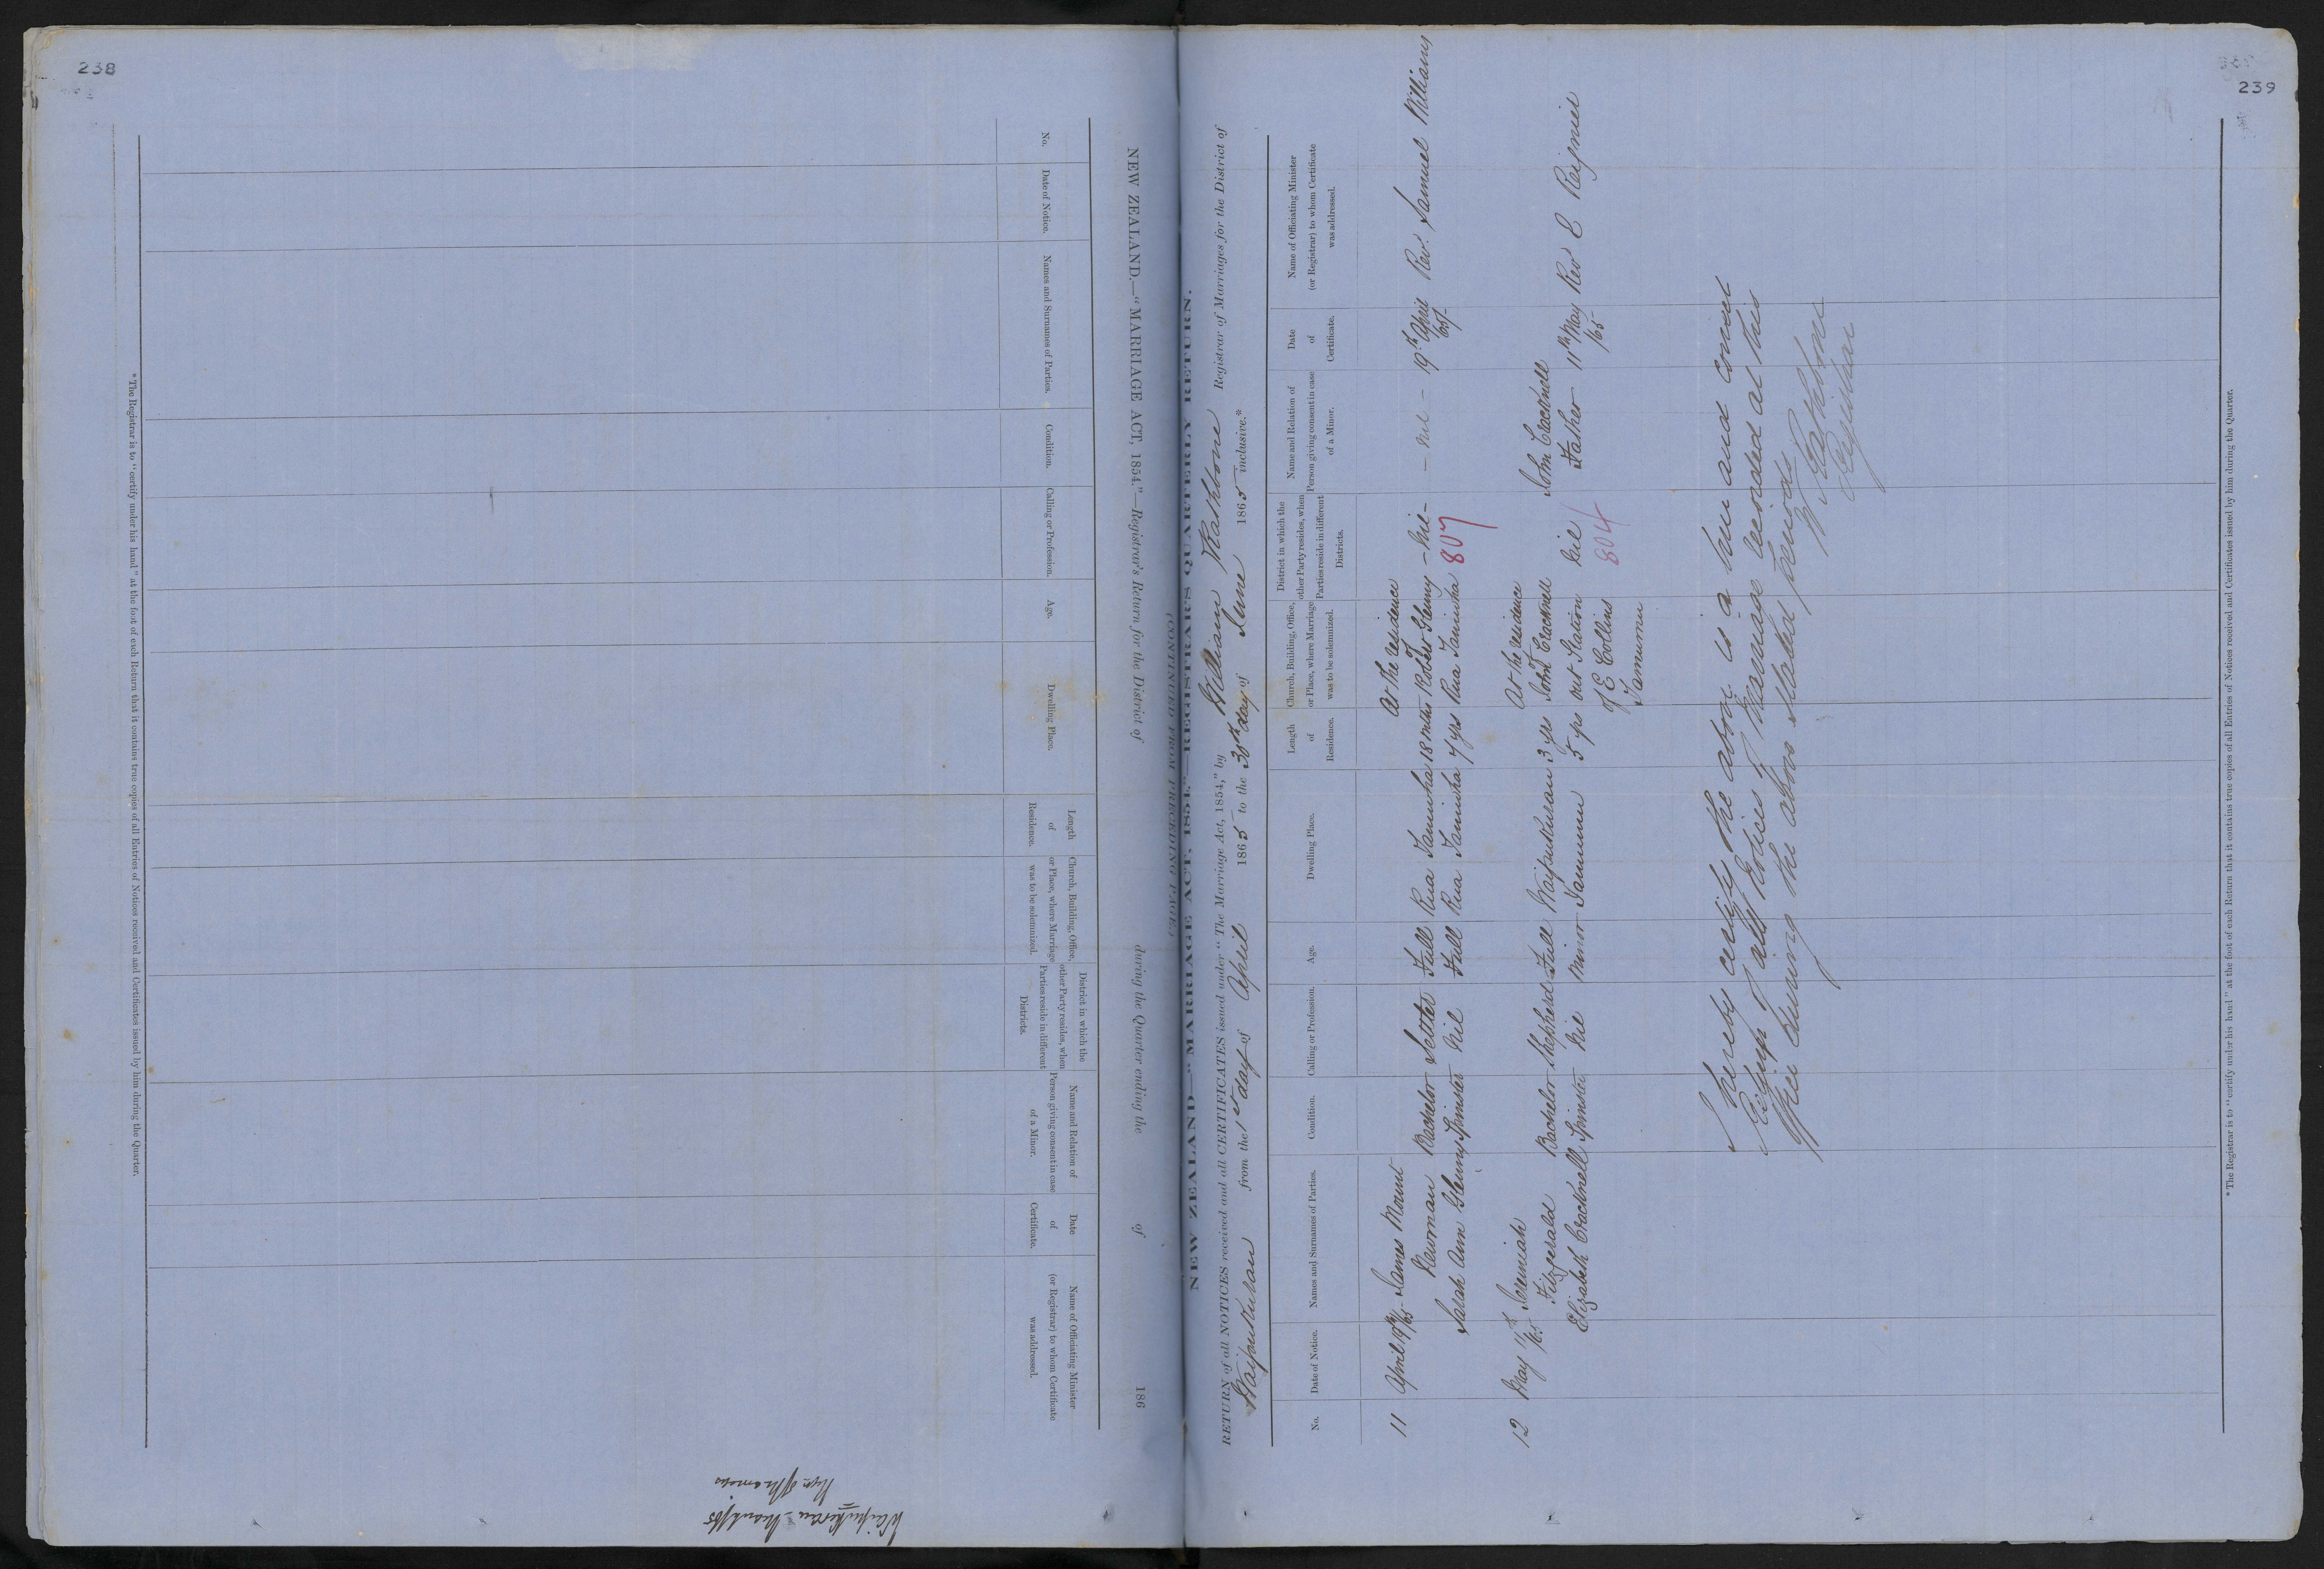 238
NEW ZEALAND.—"MARRIAGE ACT, 1854."—Registrar's Return for the District of during the Quarter ending the of 186
(CONTINUED FROM PRECEDING PAGE.)
No.
Date of Notice.
Names and Surnames of Parties.
Condition.
Calling or Profession.
Age.
Dwelling Place.
Length
of
Residence.
Church, Building, Office,
or Place, where Marriage
was to be solemnized.
District in which the
other Party resides, when
Parties reside in different
Districts.
Name and Relation of
Person giving consent in case
of a Minor.
Date
of
Certificate.
Name of Officiating Minister
(or Registrar) to whom Certificate
was addressed.
* The Registrar is to "certify under his hand" at the foot of each Return that it contains true copies of all Entries of Notices received and Certificates issued by him during the Quarter.
239
NEW ZEALAND—"MARRIAGE ACT, 1854."—REGISTRAR'S QUARTERLY RETURN.
RETURN of all NOTICES received and all CERTIFICATES issued under "The Marriage Act, 1854," by William Rathbone Registrar of Marriages for the District of
Waipukurau from the 1st day of April 1865 to the 30th day of June 1865 inclusive.*
No.
Date of Notice.
Names and Surnames of Parties.
Condition.
Calling or Profession.
Age.
Dwelling Place.
Length
of
Residence.
Church, Building, Office,
or Place, where Marriage
was to be solemnized.
District in which the
other Party resides, when
Parties reside in different
Districts.
Name and Relation of
Person giving consent in case
of a Minor.
Date
of
Certificate.
Name of Officiating Minister
(or Registrar) to whom Certificate
was addressed.
At the residence
11 April 19th/65 James Mount of
Newman Bachelor Settler Full Rua Taniwha 18 mths Robert Glenny - Nil - - Nil - 19th April /65 Rev. Samuel Williams
Sarah Ann Glenny Spinster Nil Full Rua Taniwha 7 yrs Rua Taniwha 807
At the residence
12 May 11th/65 Jeremiah of
Fitzgerald Bachelor Shepherd Full Waipukurau 3 yrs John Cracknell John Cracknell
Elizabeth Cracknell Spinster Nil Minor Tamumu 5 yrs out Station Nil Father 11th May /65 Rev E Reigniel
of E Collins 804
Tamumu
I hereby certify the above is a true and correct
of all Notices of Marriage recorded at this
Office during the above stated periods
W Rathbone
Registrar
* The Registrar is to "certify under his hand" at the foot of each Return that it contains true copies of all Entries of Notices received and Certificates issued by him during the Quarter.